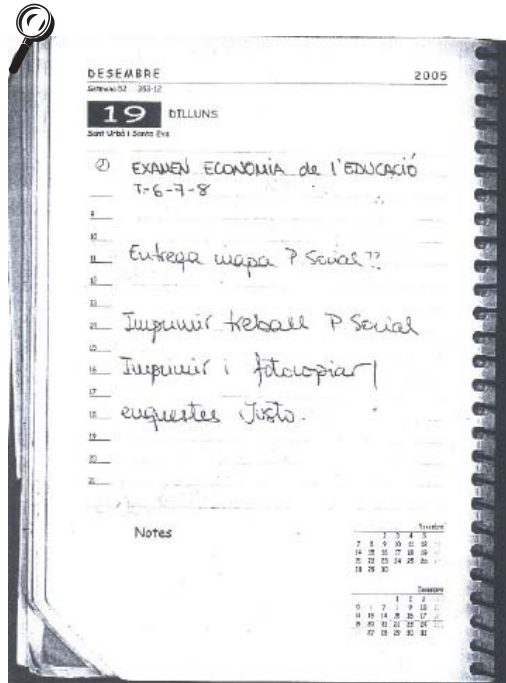 DESEMBRE 2005
Setmana 52 353-12
19 DILLUNS
Sant Urbà i Santa Eva
EXAMEN ECONOMIA de l'EDUCACIÓ
T-6-7-8
9
10
11 Entrega mapa P Social ??
12
13
14 Imprimir treball P Social
15
16 Imprimir i fotocopiar
17
18 enquestes Justo.
19
20
21
Notes
Novembre
1 2 3 4 5
7 8 9 10 11 12
14 15 16 17 18 19
21 22 23 24 25 26
28 29 30
Desembre
1 2 3